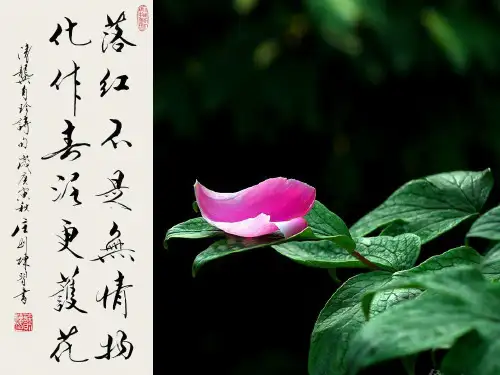 落红不是無情物
化作春泥更護花
清龔自珍詩句 歲庚寅秋 練習書